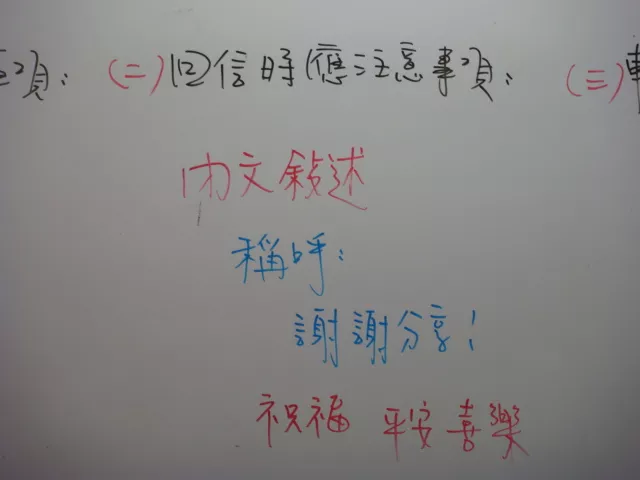 意事項：（二）回信時應注意事項：（三）
內文敍述
稱呼：
謝謝分享！
祝福 平安喜樂